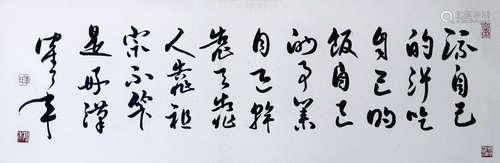 流自己
的汗吃
自己的
饭自己
的事業
自己幹
靠天靠
人靠祖
宗不算
是好漢